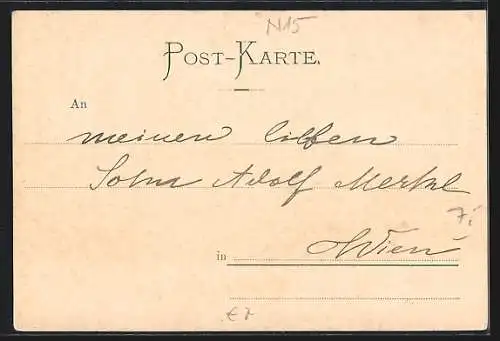 N15
POST-KARTE.
An
meinen lieben
Sohn Adolf Merkl
7.
in Wien
€7